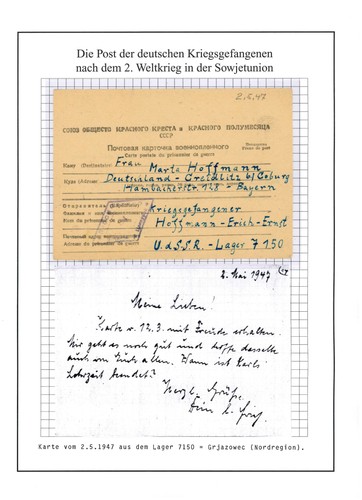 Die Post der deutschen Kriegsgefangenen
nach dem 2. Weltkrieg in der Sowjetunion
2.5.47
СОЮЗ ОБЩЕСТВ КРАСНОГО КРЕСТА и КРАСНОГО ПОЛУМЕСЯЦА
СССР
Почтовая карточка военнопленного
Carte postale du prisonnier de guerre
Кому (Destinataire) Frau Marta Hoffmann
Куда (Adresse) Deutschland - Creidlitz b/ Coburg
Hambacherstr. 128 - Bayern
Отправитель
Kriegsgefangener
Hoffmann - Erich - Ernst
Nom du prisonnier de guerre
U.d.S.S.R. - Lager 7150
Adresse du prisonnier de guerre
2. Mai 1947
Meine Lieben!
Karte v. 12.3. mit Freude erhalten.
Mir geht es noch gut und hoffe dasselbe
auch von Euch allen. Wann ist Karls
Lehrzeit beendet?
Herzl. Grüße
Karte vom 2.5.1947 aus dem Lager 7150 = Grjazowec (Nordregion).